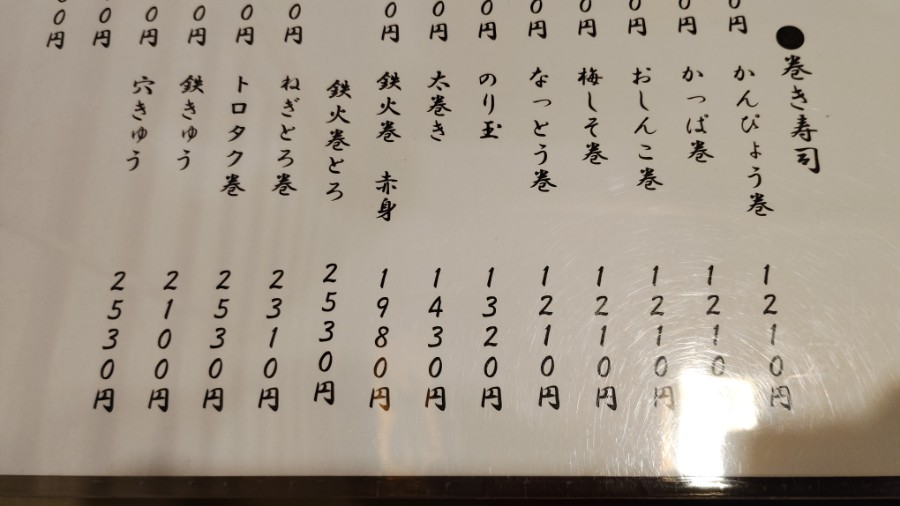 ●巻き寿司
かんぴょう巻 1210円
かっぱ巻 1210円
おしんこ巻 1210円
梅しそ巻 1210円
なっとう巻 1210円
のり玉 1320円
太巻き 1430円
鉄火巻 赤身 1980円
鉄火巻とろ 2530円
ねぎとろ巻 2310円
トロタク巻 2530円
鉄きゅう 2100円
穴きゅう 2530円
0円
0円
0円
0円
0円
0円
0円
0円
0円
0円
0円
0円
0円
0円